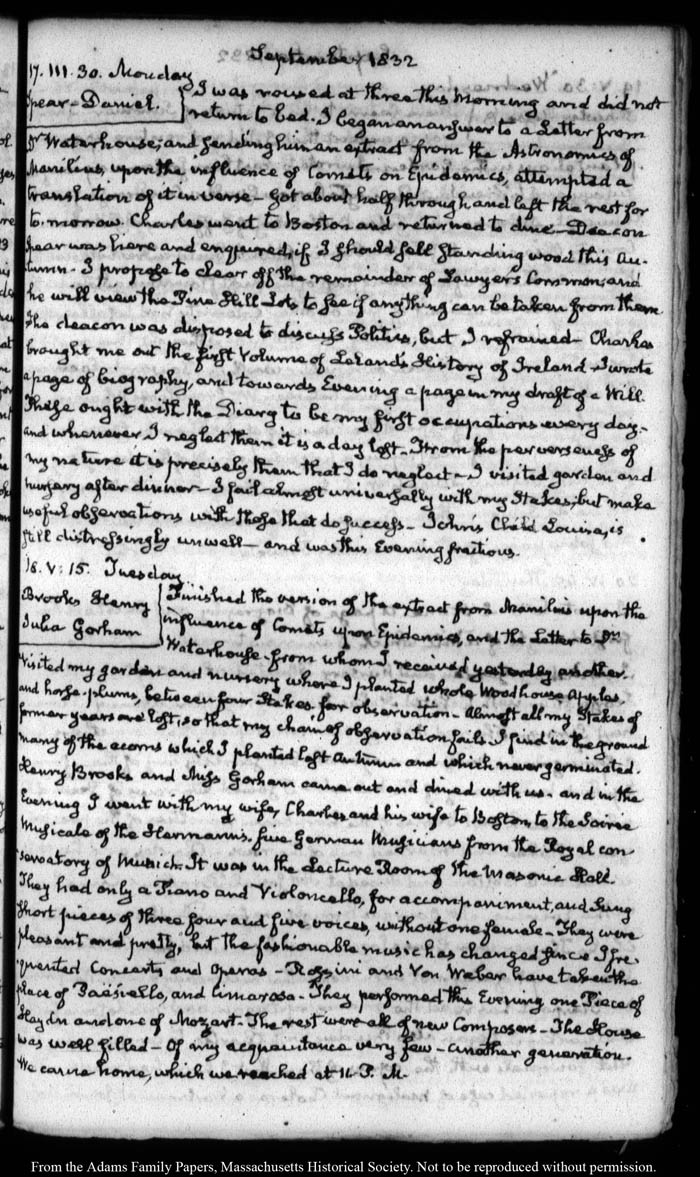 September 1832
17. III. 30. Monday
Spear-Daniel. I was roused at three this Morning and did not
return to bed. I began an answer to a Letter from
Dr Waterhouse; and sending him an extract from the Astronomics of
Manilius, upon the influence of Comets on Epidemics, attempted a
translation of it in verse - Got about half through and left the rest for
to-morrow. Charles went to Boston and returned to dine - Deacon
Spear was here and enquired, if I should sell standing wood this Au-
tumn - I propose to clear off the remainder of Lawyer's Common, and
he will view the Pine Hill Lots, to see if anything can be taken from them
The deacon was disposed to discuss Politics, but I refrained - Charles
brought me out the first Volume of Leland's History of Ireland - I wrote
a page of biography, and towards Evening a page in my draft of a Will.
These ought with the Diary to be my first occupations every day -
and whenever I neglect them it is a day lost - From the perverseness of
my nature it is precisely them that I do neglect - I visited garden and
nursery after dinner - I fail almost universally with my Stakes; but make
useful observations with those that do success - John's Child Louisa, is
still distressingly unwell - and was this Evening fractious.
18. V: 15. Tuesday
Brooks Henry
Julia Gorham
Finished the version of the extract from Manilius upon the
influence of Comets upon Epidemics, and the Letter to Dr
Waterhouse - from whom I received yesterday another.
Visited my garden and nursery where I planted whole Woodhouse Apples,
and horse-plums, between four Stakes, for observation - Almost all my Stakes of
former years are lost, so that my chain of observation fails. I find in the ground
many of the acorns which I planted last Autumn and which never germinated.
Henry Brooks and Miss Gorham came out and dined with us - and in the
Evening I went with my wife, Charles and his wife to Boston to the Soirée
Musicale of the Hermanns. five German Musicians from the Royal con
servatory of Musick. It was in the Lecture Room of the Masonic Hall.
They had only a Piano and Violoncello, for accompaniment, and sung
short pieces of three four and five voices, without one female - They were
pleasant and pretty, but the fashionable music has changed since I fre-
quented Concerts and Operas - Rossini and Von Weber have taken the
place of Paësiello, and Cimarosa - They performed this Evening one Piece of
Haydn and one of Mozart - The rest were all of new Composers - The House
was well filled - Of my acquaintance very few - another generation.
We came home, which we reached at 11 P. M.
From the Adams Family Papers, Massachusetts Historical Society. Not to be reproduced without permission.